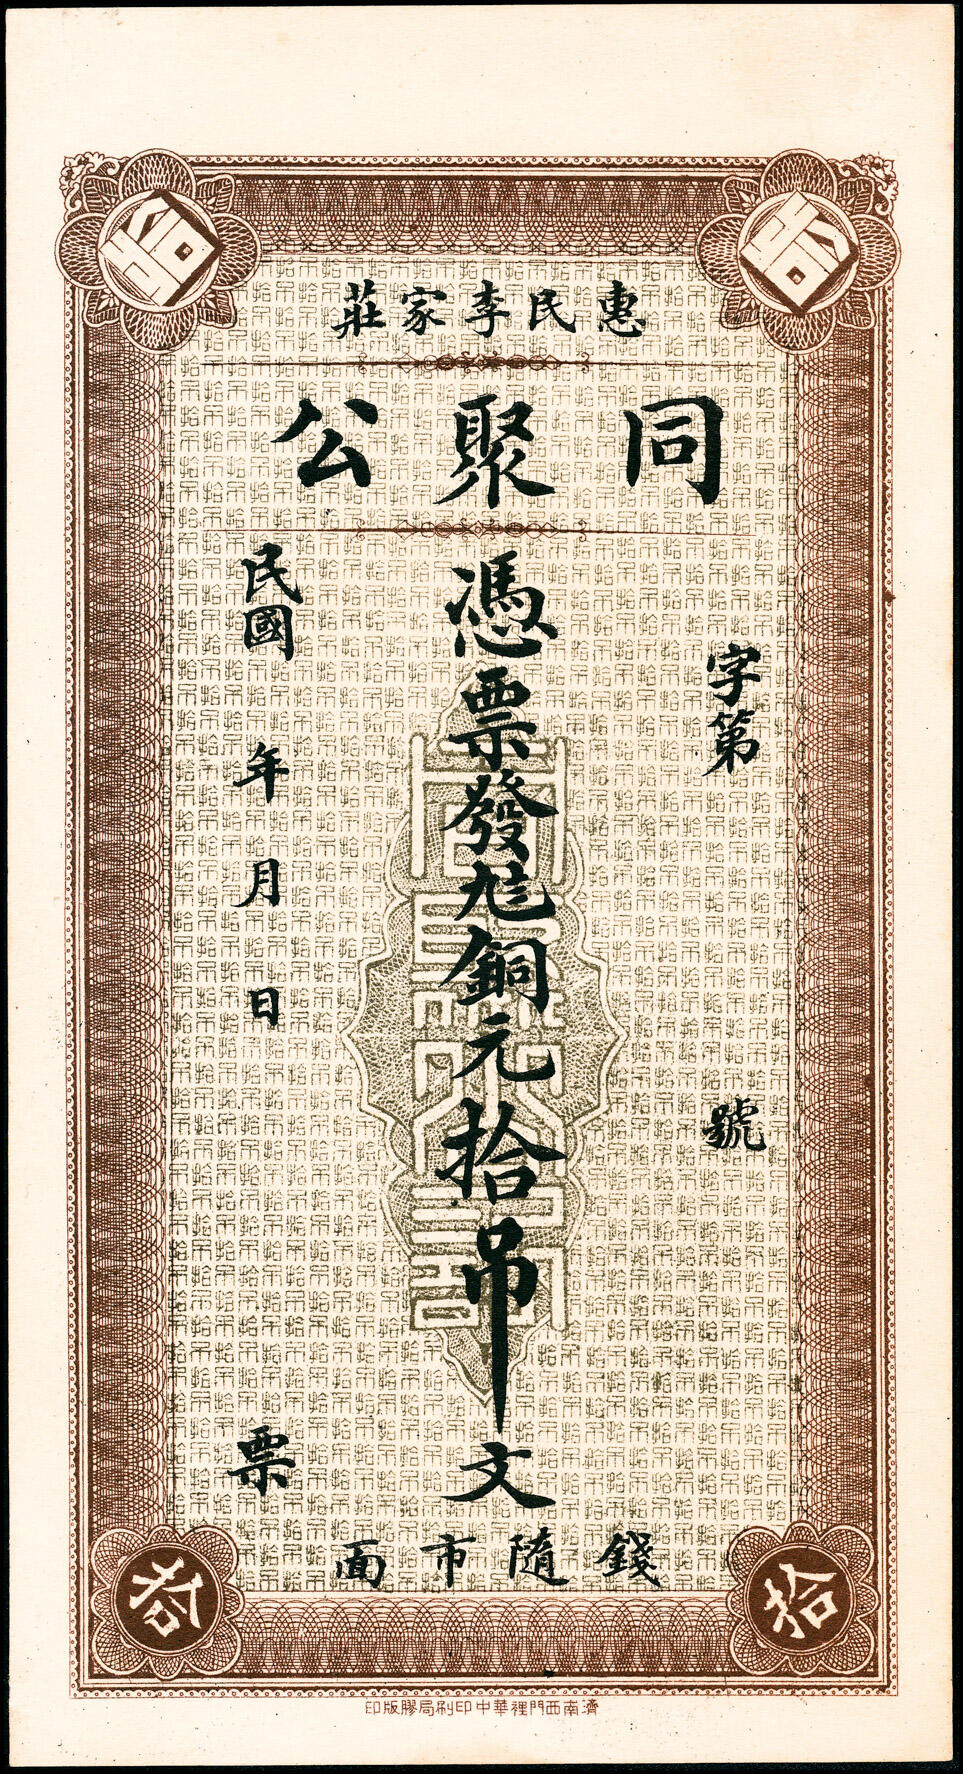 拾
拾
惠民李家莊
同聚公
字第 號
憑票發兌銅元拾吊文
民國 年 月 日
票
錢隨市面
同聚公記
拾
拾
濟南西門裡華中印刷局膠版印